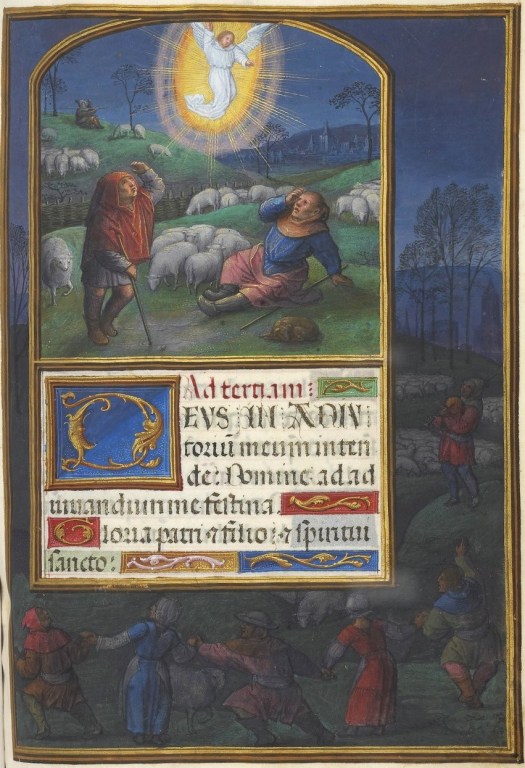 Ad tertiam:
DEVS IN ADIV
toriū meum inten
de: Domine ad ad
iuuandum me festina
Gloria patri & filio: & spiritui
sancto: